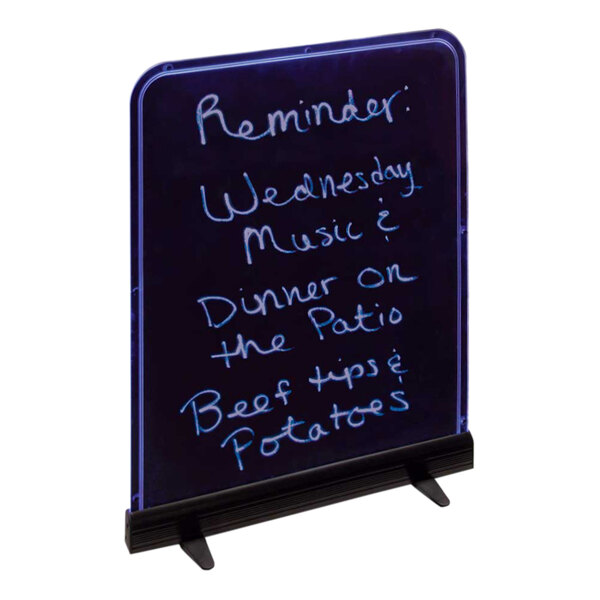 Reminder:
Wednesday
Music &
Dinner on
the Patio
Beef tips &
Potatoes